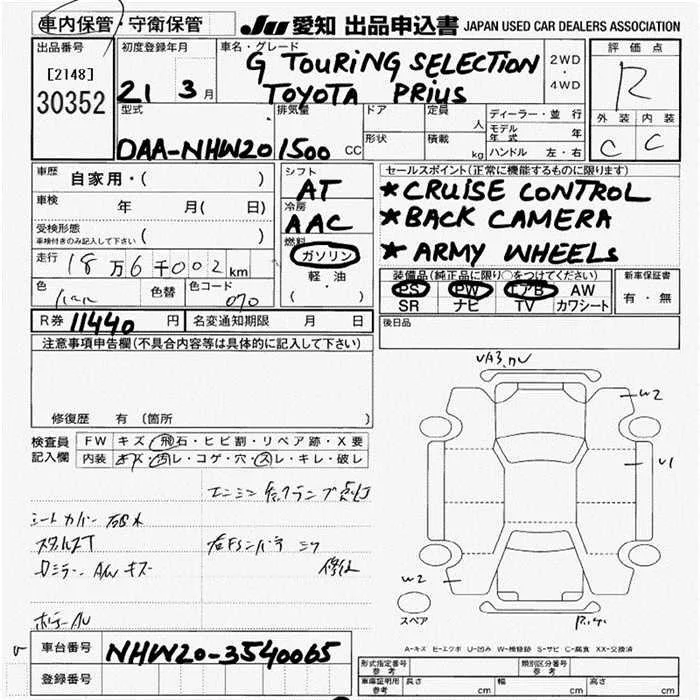 車内保管・守衛保管 JU 愛知 出品申込書 JAPAN USED CAR DEALERS ASSOCIATION
出品番号
[2148]
30352
初度登録年月
21 3月
車名・グレード
G TOURING SELECTION
TOYOTA PRIUS
2WD
・
4WD
評価点
R
外装 内装
C C
型式
DAA-NHW20
排気量
1500 CC
ドア
形状
定員 人
積載 kg
ディーラー・並行
モデル年式 年
ハンドル 左・右
車歴 自家用・( )
車検 年 月( 日)
受検形態
車検付きのみ記入して下さい ( )
走行 18万6千002km
色 色替 色コード 070
シフト
AT
冷房
AAC
燃料
ガソリン
軽・油
( ・ )
セールスポイント(正常に機能するものに限ります)
*CRUISE CONTROL
*BACK CAMERA
*ARMY WHEELS
装備品(純正品に限り○をつけてください)
PS PW エアB AW
SR ナビ TV カワシート
新車保証書
有・無
R券 11440 円 名変通知期限 月 日
後日品
注意事項申告欄(不具合内容等は具体的に記入して下さい)
修復歴 有 〔箇所 〕
検査員記入欄
FW キズ・飛石・ヒビ割・リペア跡・X要
内装 キズ・汚レ・コゲ・穴・スレ・キレ・破レ
エンジンチェックランプ点灯
シートカバー
W2
U1
W2
スペア
A-キズ E-エクボ U-凹み W-補修跡 S-サビ C-腐食 XX-交換済
車台番号 NHW20-3540065
登録番号
形式指定番号 参考 類別区分番号 参考
車庫証明用 参考 長さ cm 幅 cm 高さ cm